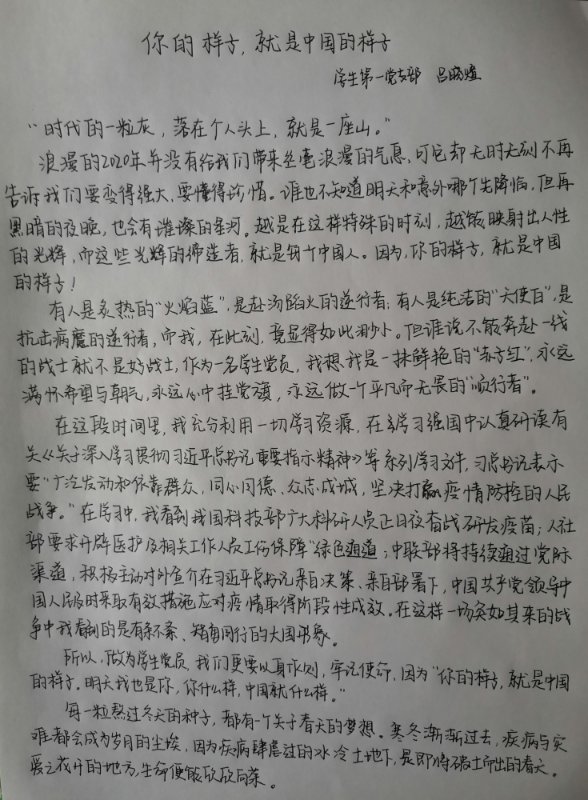 你的样子,就是中国的样子
学生第一党支部 吕晓
“时代的一粒灰,落在个人头上,就是一座山。”
浪漫的2020年并没有给我们带来丝毫浪漫的气息,可它却无时无刻不再
告诉我们要变得强大、要懂得珍惜。谁也不知道明天和意外哪个先降临,但再
黑暗的夜晚,也会有璀璨的星河。越是在这样特殊的时刻,越能映射出人性
的光辉,而这些光辉的缔造者,就是每个中国人。因为,你的样子,就是中国
的样子!
有人是炙热的“火焰蓝”,是赴汤蹈火的逆行者;有人是纯洁的“天使白”,是
抗击病魔的逆行者,而我,在此刻,竟显得如此渺小。但谁说不能奔赴一线
的战士就不是好战士,作为一名学生党员,我想我是一抹鲜艳的“赤子红”,永远
满怀希望与朝气,永远心中挂党旗,永远做一个平凡而无畏的“顺行者”。
在这段时间里,我充分利用一切学习资源,在学习强国中认真研读有
关《关于深入学习贯彻习近平总书记重要指示精神》等系列学习文件,习总书记表示
要“广泛发动和依靠群众,同心同德、众志成城,坚决打赢疫情防控的人民
战争。”在学习中,我看到我国科技部广大科研人员正日夜奋战研发疫苗;人社
部要求开辟医护及相关工作人员工伤保障“绿色通道;中联部将持续通过党际
渠道,积极主动对外宣介在习近平总书记亲自决策、亲自部署下,中国共产党领导中
国人民及时采取有效措施应对疫情取得阶段性成效。在这样一场突如其来的战
争中我看到的是有条不紊、携肩同行的大国形象。
所以,做为学生党员,我们更要以身作则,牢记使命,因为“你的样子,就是中国
的样子。明天我也是你,你什么样,中国就什么样。”
每一粒熬过冬天的种子,都有一个关于春天的梦想。寒冬渐渐过去,疾病与灾
难都会成为岁月的尘埃,因为疾病肆虐过的冰冷土地下,是即将破土而出的春天。
爱之花开的地方,生命便能欣欣向荣。